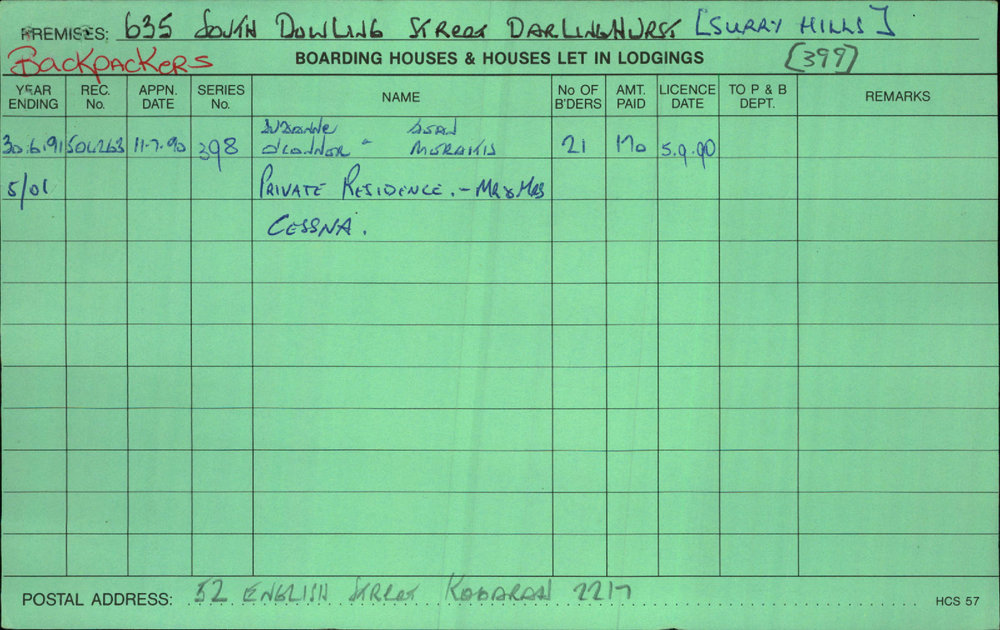 PREMISES: 635 SOUTH DOWLING STREET DARLINGHURST [SURRY HILLS]
BACKPACKERS BOARDING HOUSES & HOUSES LET IN LODGINGS [399]
YEAR ENDING REC. No. APPN. DATE SERIES No. NAME No OF B'DERS AMT. PAID LICENCE DATE TO P & B DEPT. REMARKS
SUZANNE
30.6.91 11.7.90 398 O'CONNOR 21 170 5.9.90
5/01 PRIVATE RESIDENCE. - MR & MRS
CESSNA.
POSTAL ADDRESS: 52 ENGLISH STREET KOGARAH 2217
HCS 57